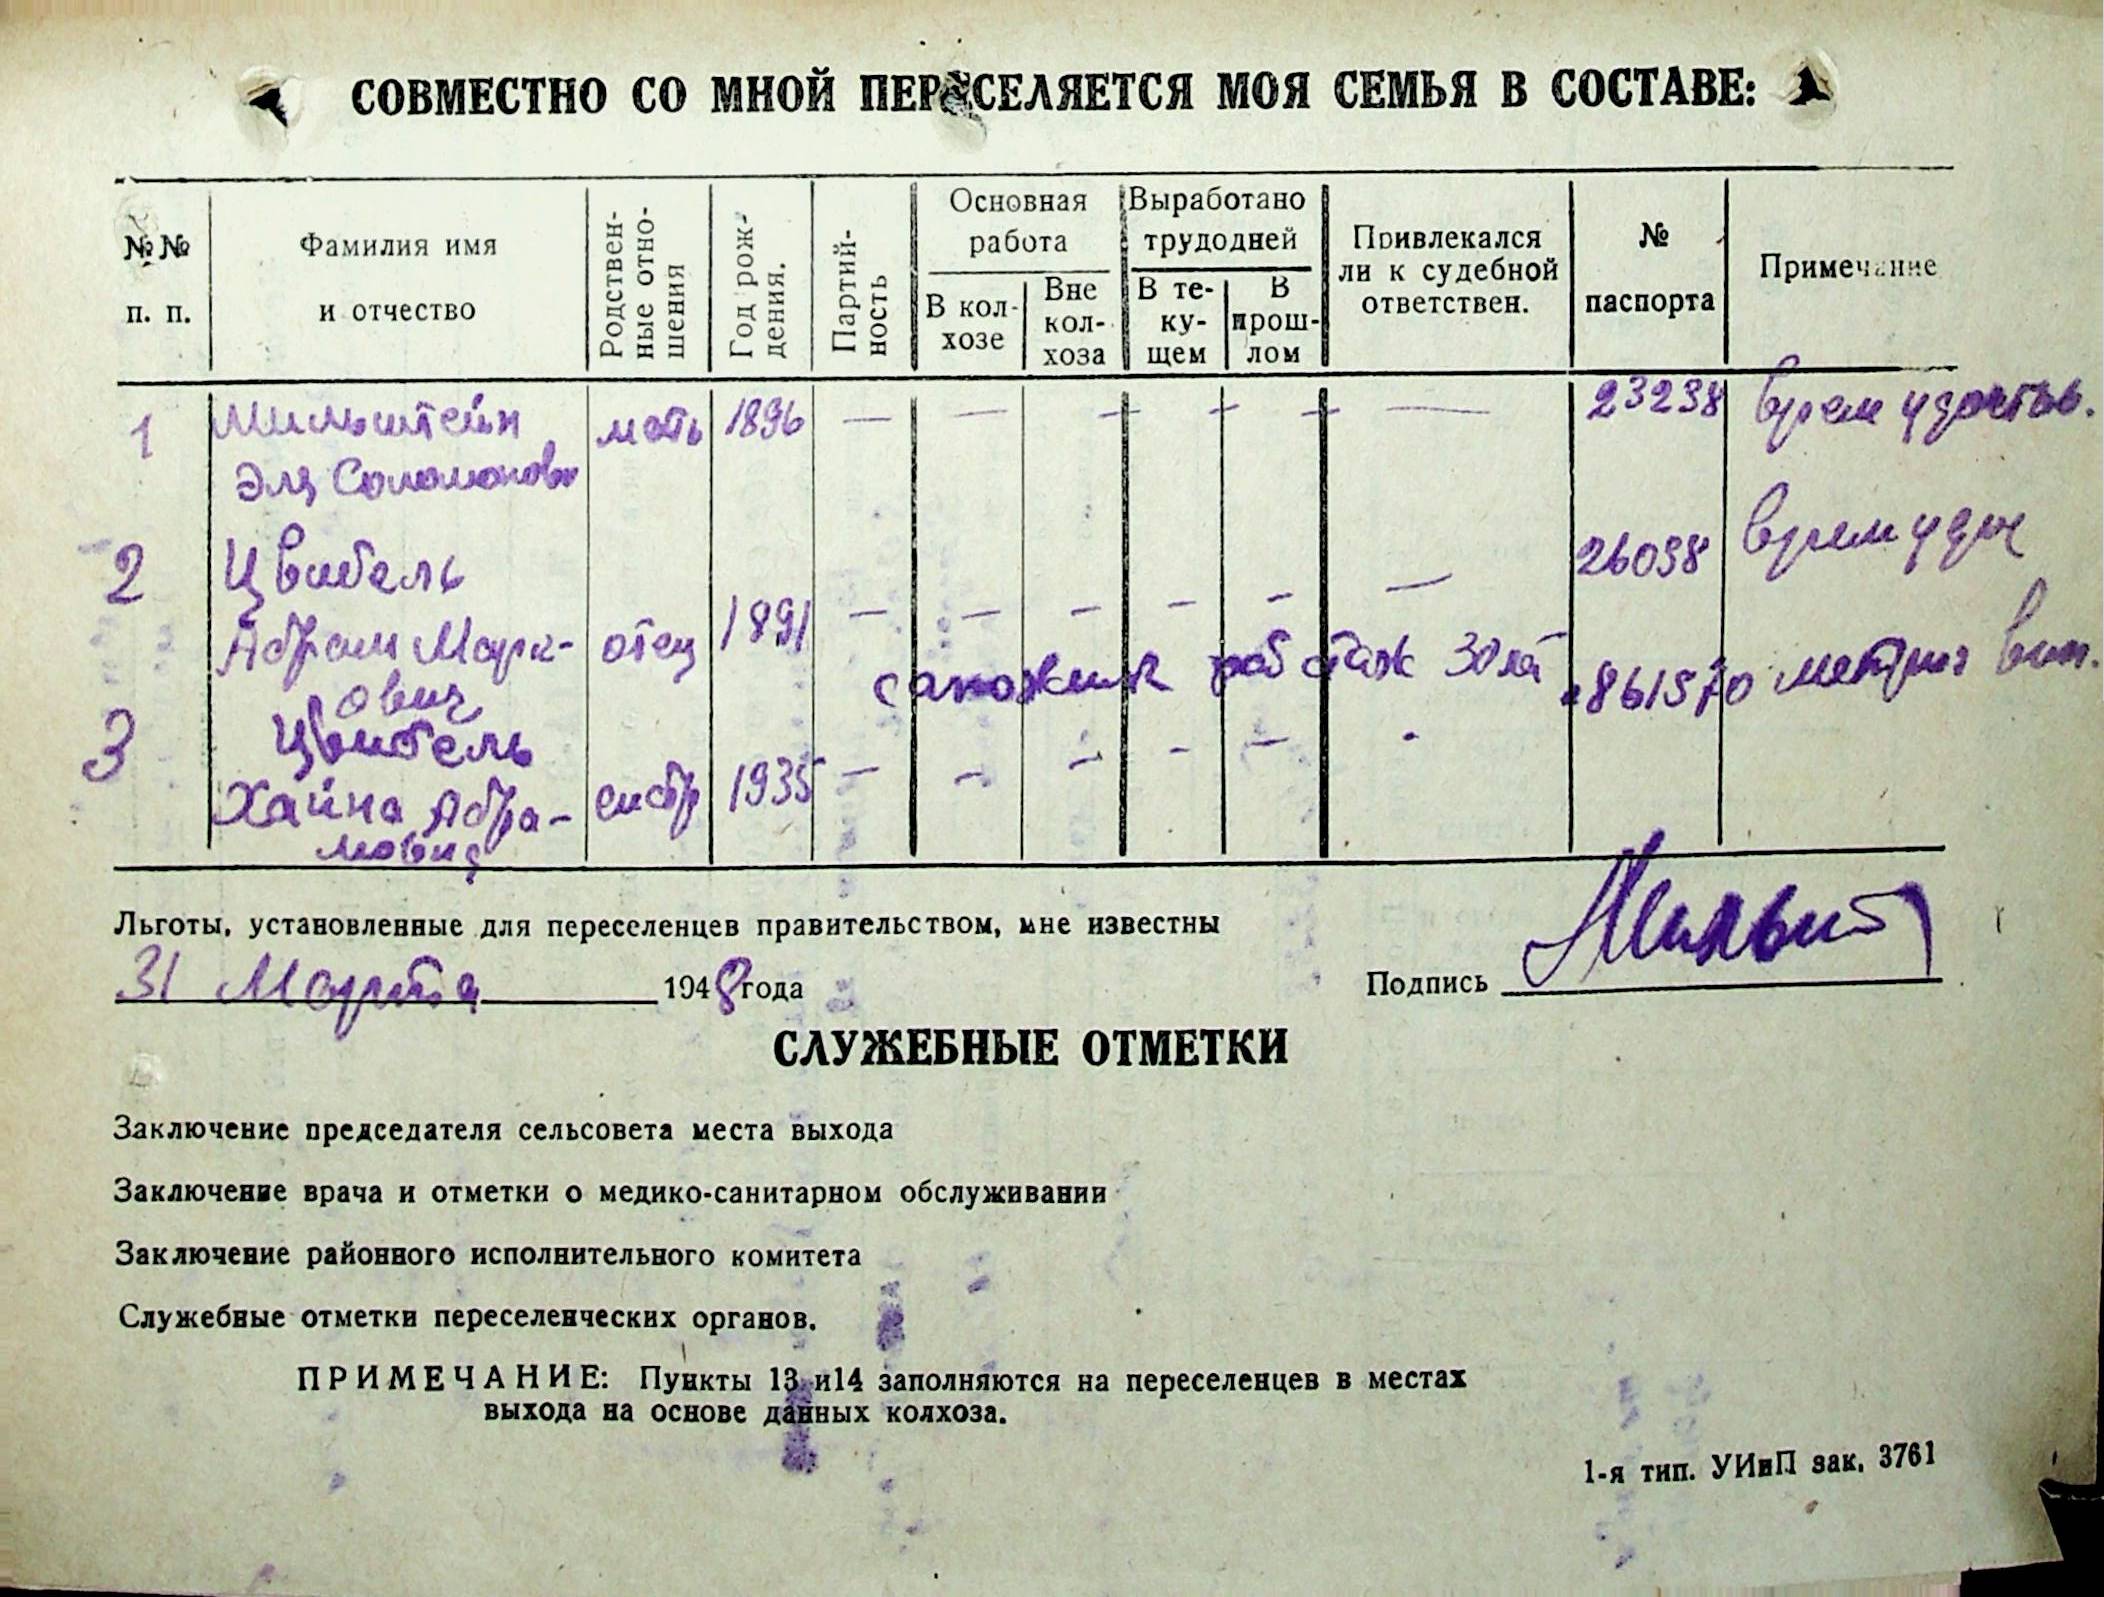 СОВМЕСТНО СО МНОЙ ПЕРЕСЕЛЯЕТСЯ МОЯ СЕМЬЯ В СОСТАВЕ:
№№ п. п.
Фамилия имя и отчество
Родствен- ные отно- шения
Год рож- дения.
Партий- ность
Основная работа
В кол- хозе
Вне кол- хоза
Выработано трудодней
В те- ку- щем
В прош- лом
Привлекался ли к судебной ответствен.
№ паспорта
Примечание
1 Мильштейн мать 1896 — — — — — — 23238 врем удостов.
Эля Соломонов
2 Цвибель 26038 врем удос
Абрам Марк- отец 1891 — — — — — —
ович сапожник раб стаж 30 лет
3 Цвибель 861570 метрич вып.
Хайна Абра- сестр 1935 — — — — —
мовна
Льготы, установленные для переселенцев правительством, мне известны
31 Марта 1948 года
Подпись Мильшт
СЛУЖЕБНЫЕ ОТМЕТКИ
Заключение председателя сельсовета места выхода
Заключение врача и отметки о медико-санитарном обслуживании
Заключение районного исполнительного комитета
Служебные отметки переселенческих органов.
ПРИМЕЧАНИЕ: Пункты 13 и14 заполняются на переселенцев в местах
выхода на основе данных колхоза.
1-я тип. УИиП зак. 3761